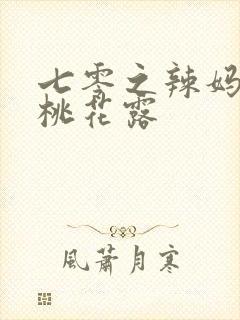 七零之辣妈
桃花露
風蕭月寒